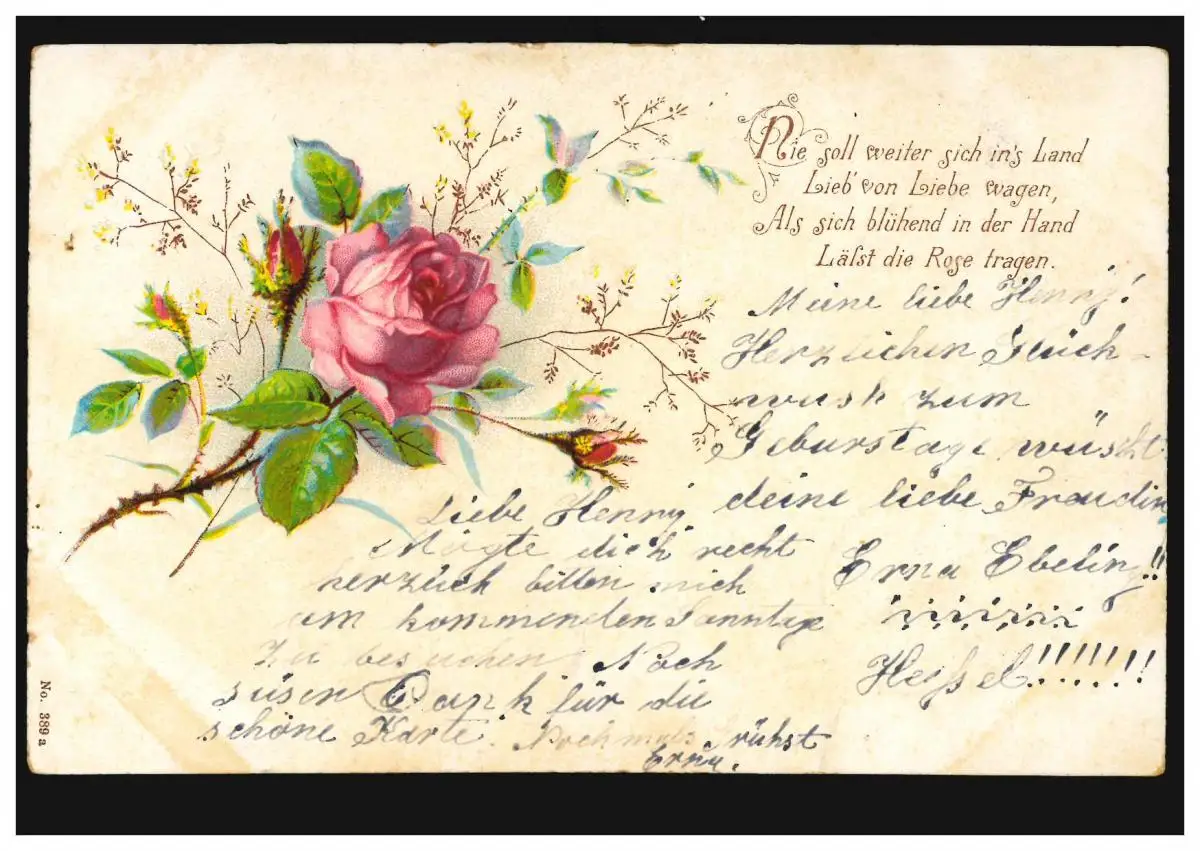 Nie soll weiter sich in's Land
Lieb' von Liebe wagen,
Als sich blühend in der Hand
Läſst die Rose tragen.
Meine liebe Henny!
Herzlichen Glück-
wusk zum
Geburstage wüscht
deine liebe Freudin
Erna Ebeling!!
Heſsel!!!!!!!
Liebe Henny
Mögte dich recht
herzlich bitten mich
am kommenden Sonntage
zu besuchen Noch
süsen Dank für die
schöne Karte. Nochmals
Erna.
No. 389 a